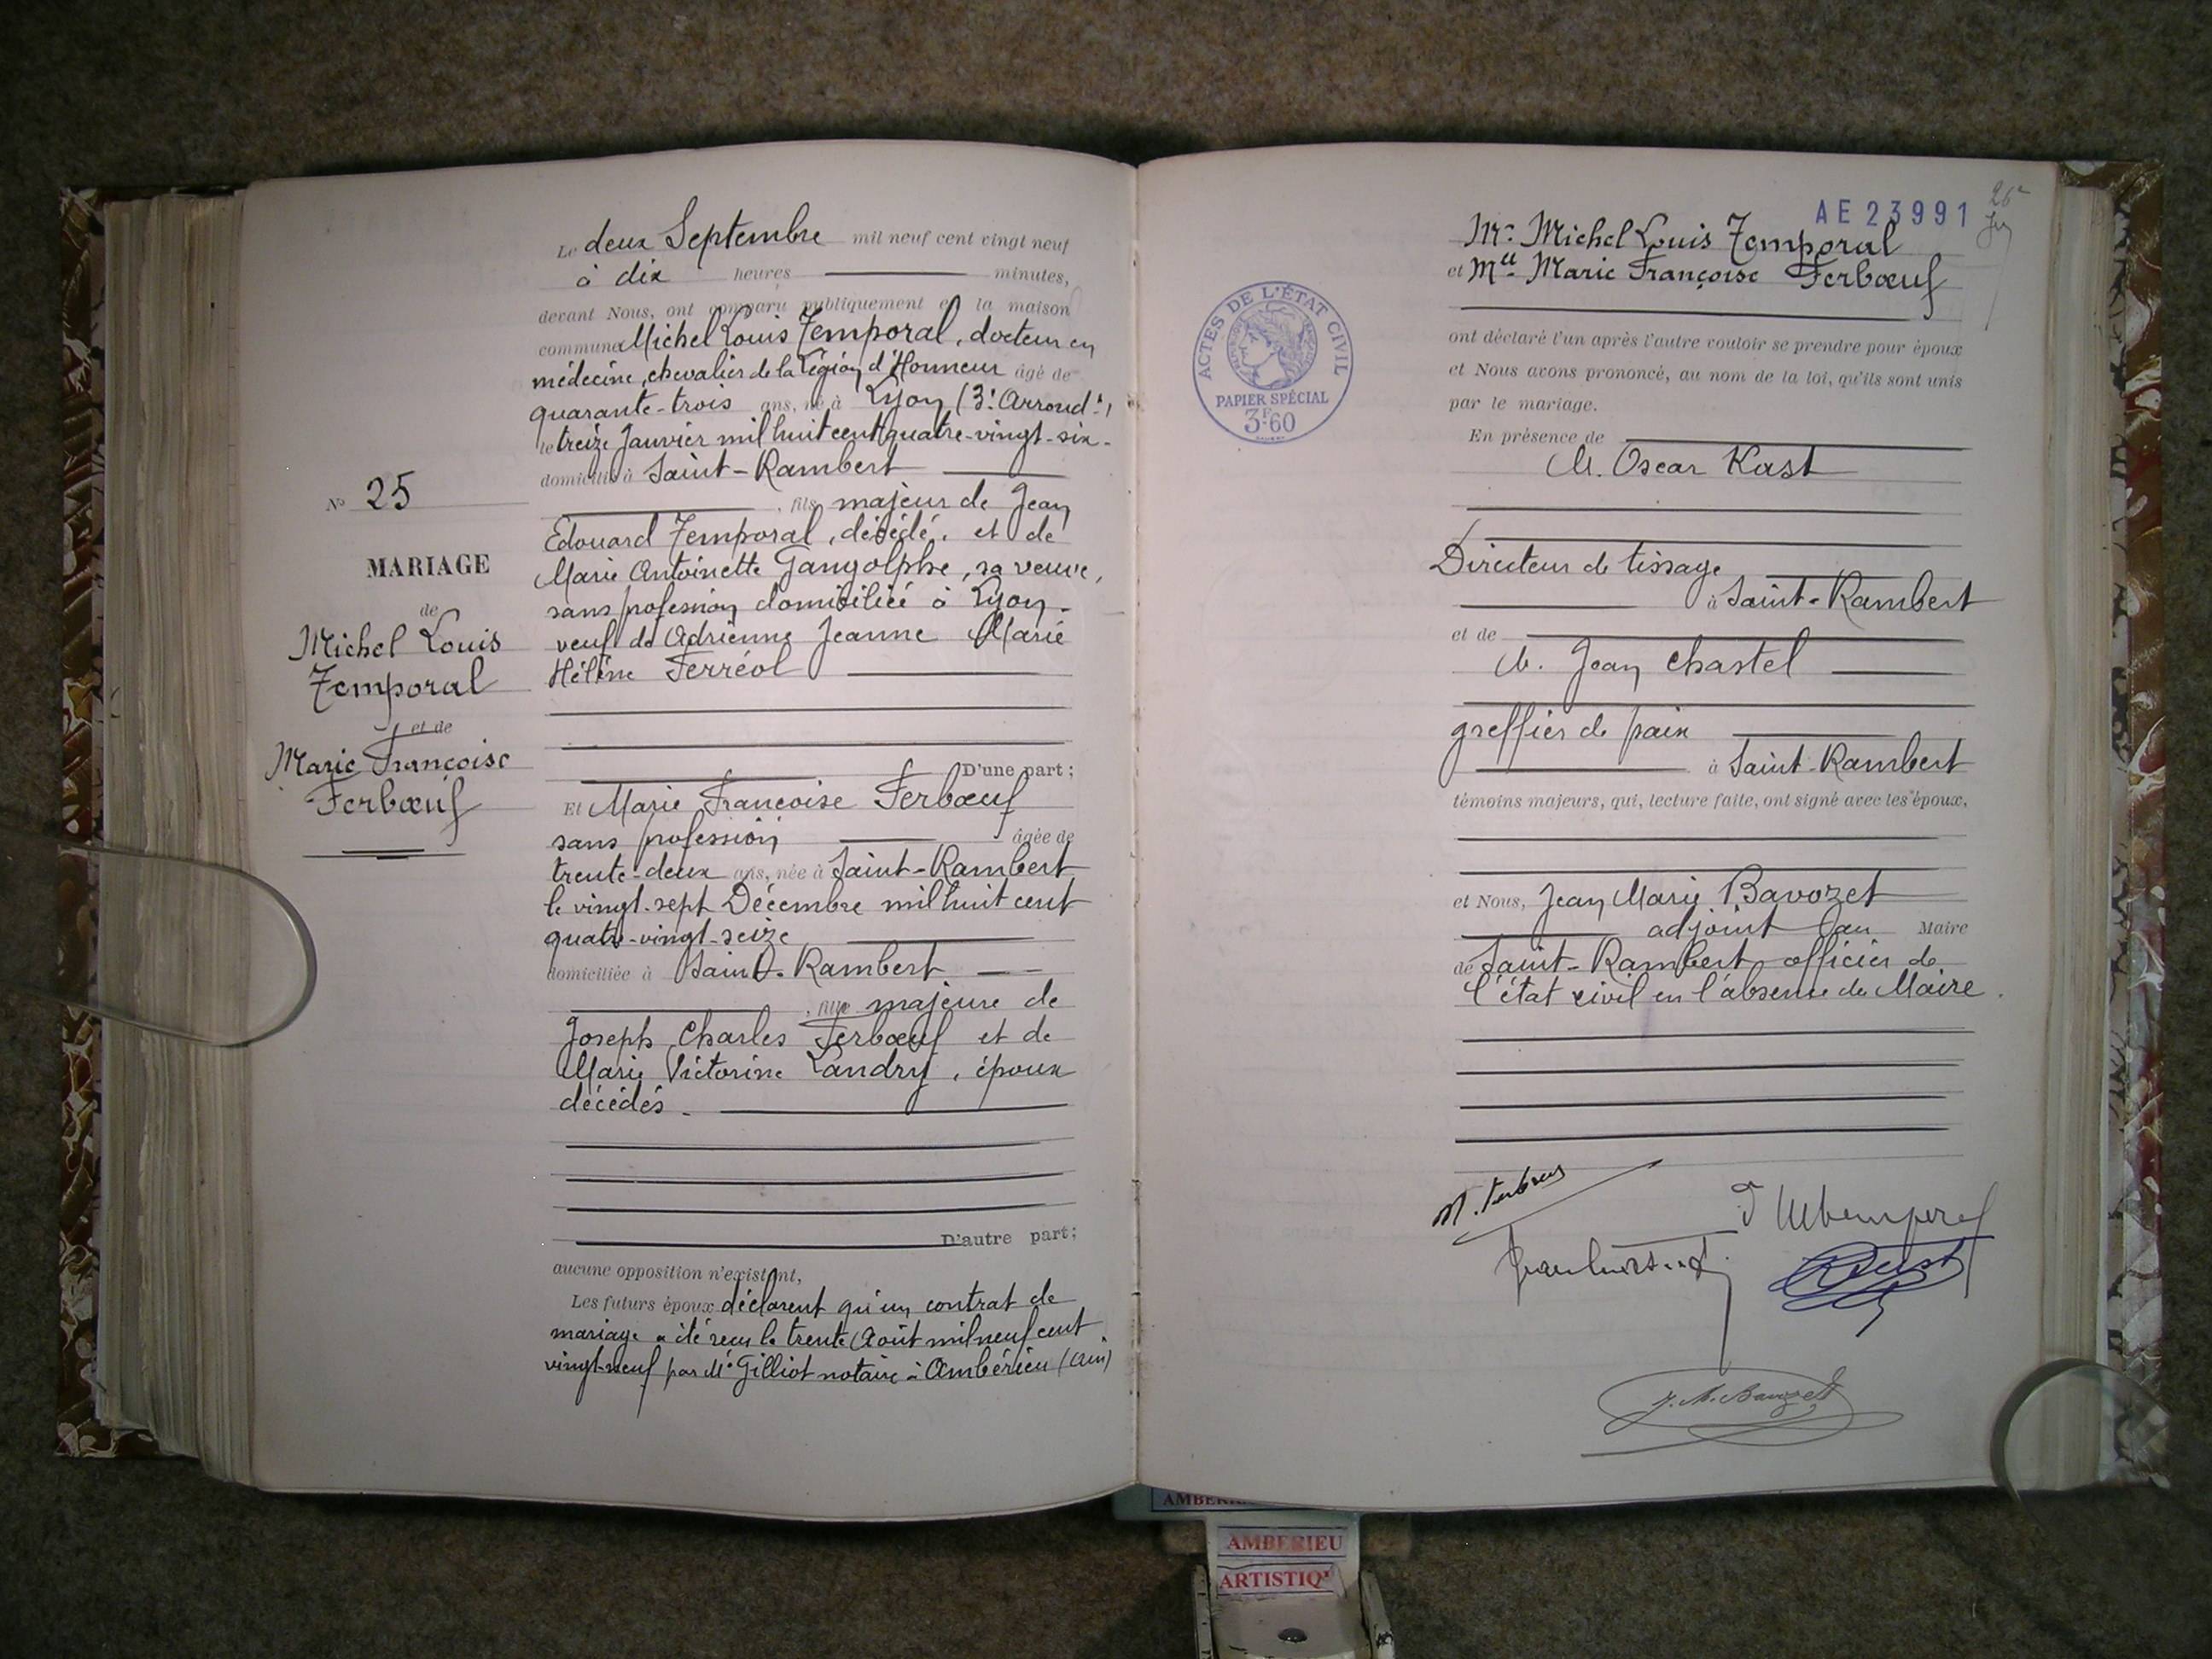 Le deux Septembre mil neuf cent vingt neuf
à dix heures minutes,
devant Nous, ont comparu publiquement en la maison
commune Michel Louis Temporal, docteur en
médecine, chevalier de la Légion d'Honneur âgé de
quarante-trois ans, né à Lyon (3e Arrondt)
le treize Janvier mil huit cent quatre-vingt-six-
domicilié à Saint-Rambert
, fils majeur de Jean
Edouard Temporal, décédé, et de
Marie Antoinette Gangolphe, sa veuve,
sans profession domiciliée à Lyon-
veuf de Adrienne Jeanne Marie
Hélène Ferréol
D'une part;
Et Marie Françoise Ferbœuf
sans profession âgée de
trente-deux ans, née à Saint-Rambert
le vingt-sept Décembre mil huit cent
quatre-vingt-seize
domiciliée à Saint-Rambert
, fille majeure de
Joseph Charles Ferbœuf et de
Marie Victorine Landry, époux
décédés.
D'autre part;
aucune opposition n'existant,
Les futurs époux déclarent qu'un contrat de
mariage a été reçu le trente Août mil neuf cent
vingt-neuf par Me Gilliot notaire à Ambérieu (Ain)
No 25
MARIAGE
de
Michel Louis
Temporal
et de
Marie Françoise
Ferbœuf
AE 23991
26
Mr Michel Louis Temporal
et Mlle Marie Françoise Ferbœuf
ACTES DE L'ÉTAT CIVIL
PAPIER SPÉCIAL
3F60
ont déclaré l'un après l'autre vouloir se prendre pour époux
et Nous avons prononcé, au nom de la loi, qu'ils sont unis
par le mariage.
En présence de
M. Oscar Kast
Directeur de tissage
à Saint-Rambert
et de
M. Jean Chastel
greffier de paix
à Saint-Rambert
témoins majeurs, qui, lecture faite, ont signé avec les époux,
et Nous, Jean Marie Bavozet
adjoint au Maire
de Saint-Rambert officier de
l'état civil en l'absence du Maire.
J. M. Bavozet
AMBERIEU
ARTISTIQ